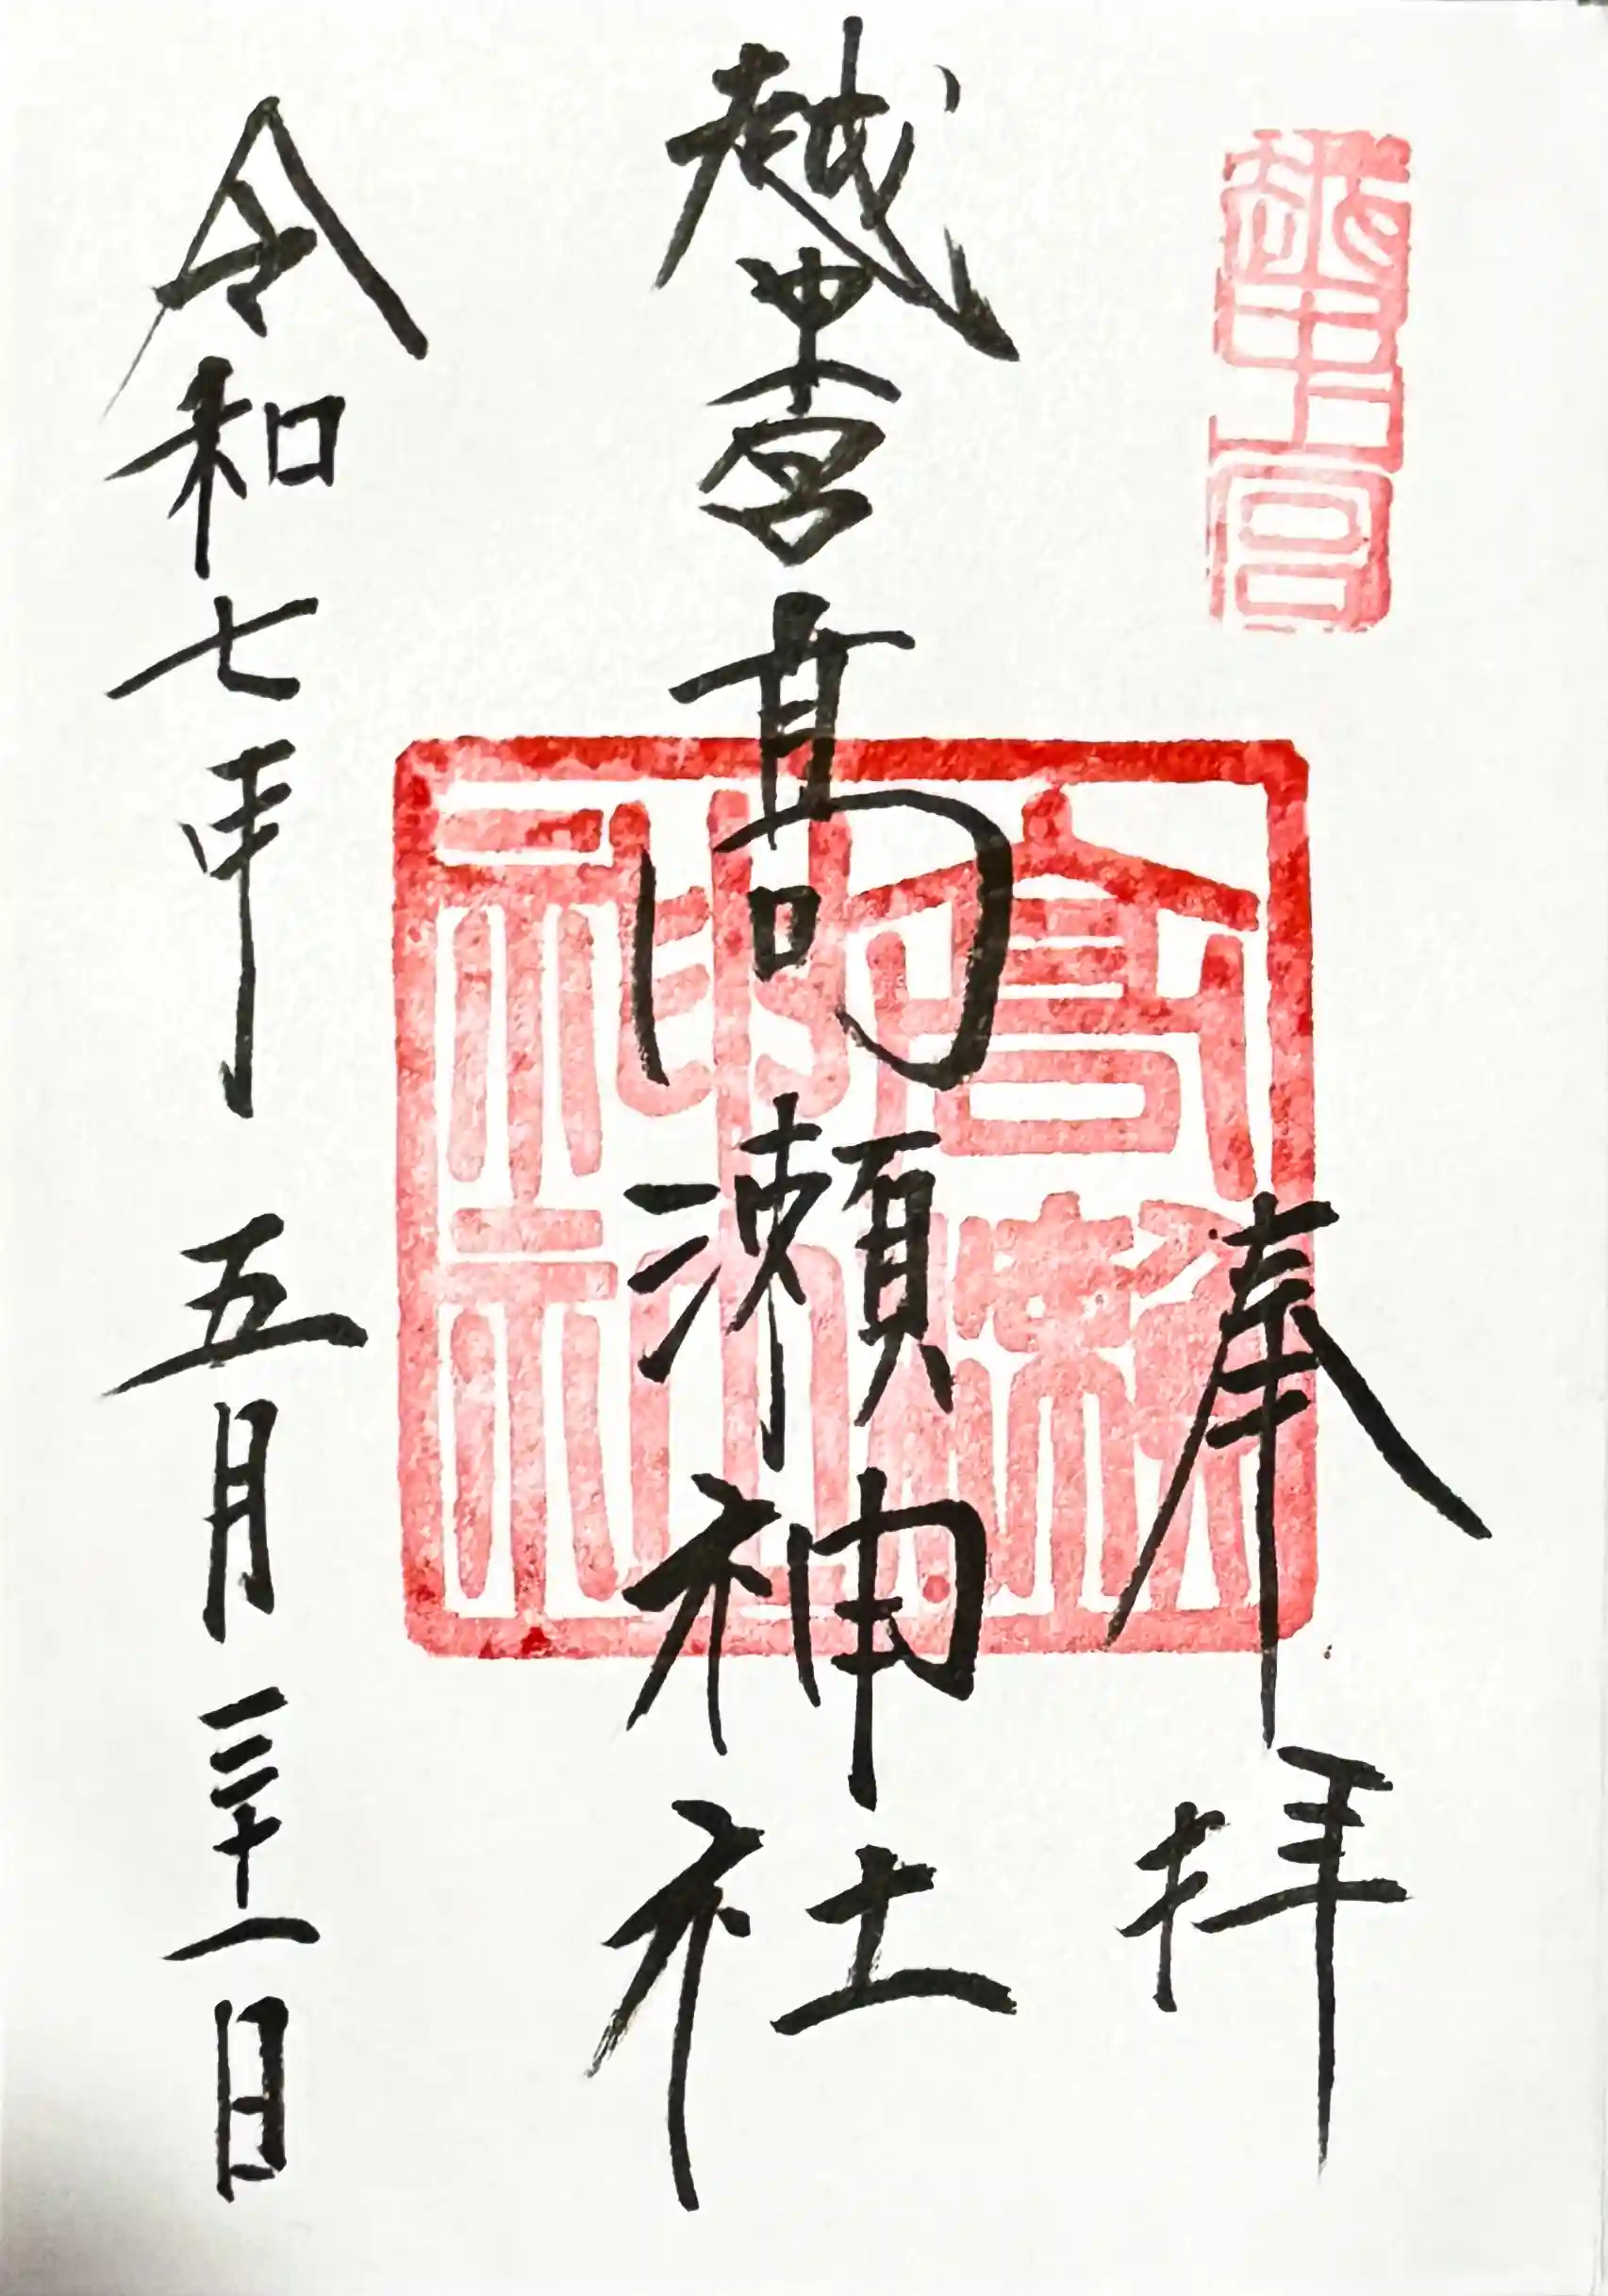 越中一宮
奉拝
越中一宮 髙瀬神社
高瀬神社
令和七年 五月三十一日